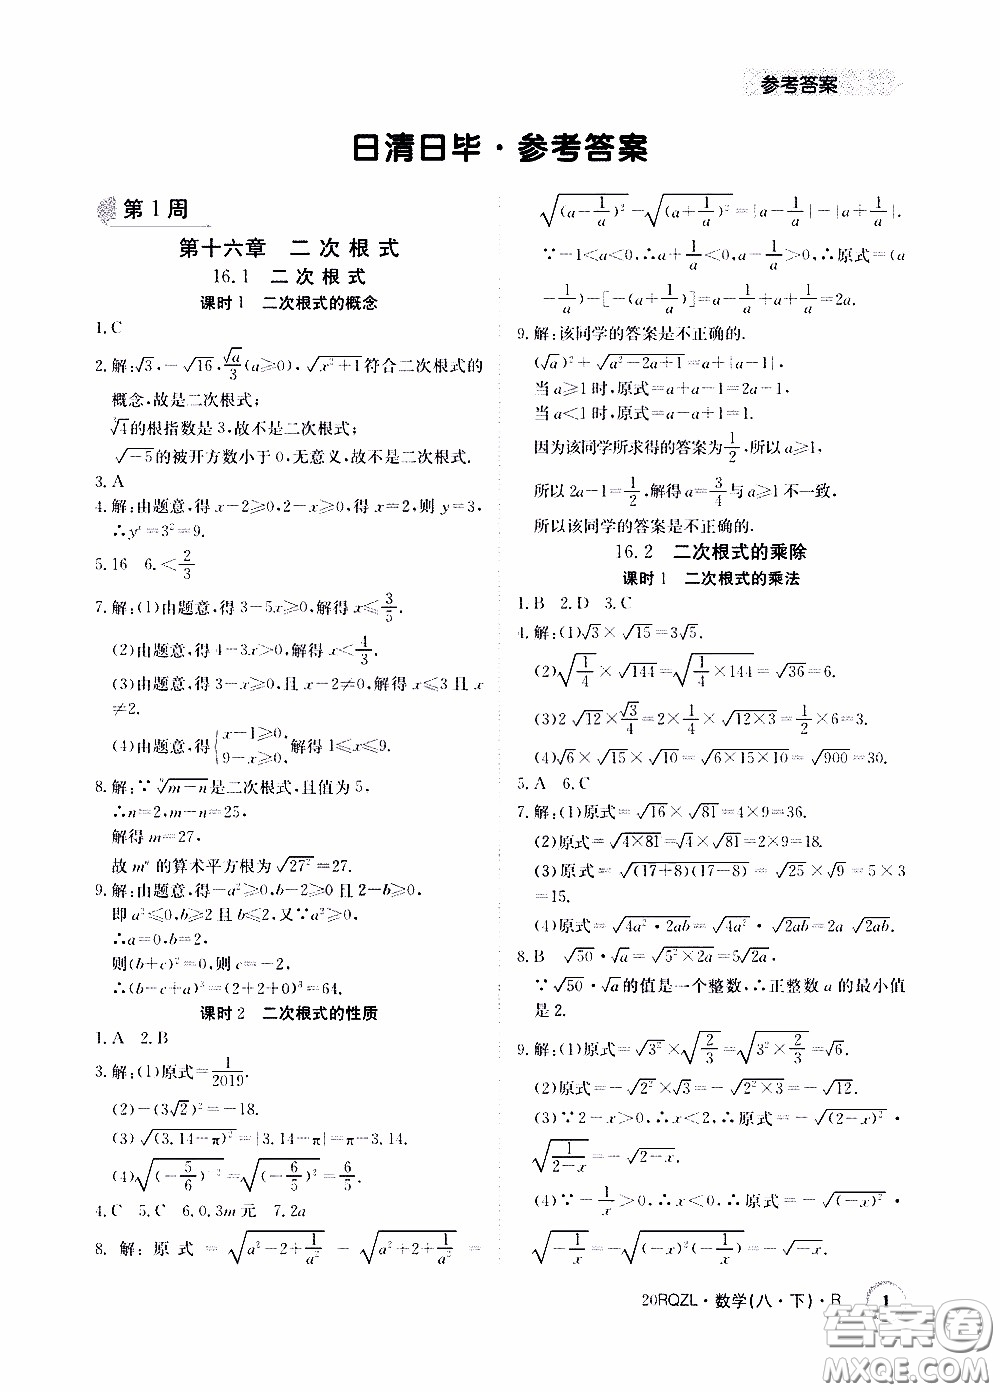 参考答案
日清日毕·参考答案
第1周
第十六章 二次根式
16.1 二次根式
课时1 二次根式的概念
1.C
2.解:√3,-√16,√a/3(a≥0),√(x²+1)符合二次根式的
概念,故是二次根式;
∛4的根指数是3,故不是二次根式;
√-5的被开方数小于0,无意义,故不是二次根式.
3.A
4.解:由题意,得x-2≥0,2-x≥0,得x=2,则y=3,
∴yˣ=3²=9.
5.16 6.<2/3
7.解:(1)由题意,得3-5x≥0,解得x≤3/5.
(2)由题意,得4-3x>0,解得x<4/3.
(3)由题意,得3-x≥0,且x-2≠0,解得x≤3且x
≠2.
(4)由题意,得{x-1≥0,
9-x≥0,解得1≤x≤9.
8.解:∵ⁿ√(m-n)是二次根式,且值为5,
∴n=2,m-n=25,
解得m=27,
故mⁿ的算术平方根为√27²=27.
9.解:由题意,得-a²≥0,b-2≥0且2-b≥0,
即a²≤0,b≥2且b≤2,又∵a²≥0,
∴a=0,b=2,
则(b+c)²=0,则c=-2,
∴(b-c+a)³=(2+2+0)³=64.
课时2 二次根式的性质
1.A 2.B
3.解:(1)原式=1/2019.
(2)-(3√2)²=-18.
(3)√(3.14-π)²=|3.14-π|=π-3.14.
(4)√(-5/6)⁻²=√(-6/5)²=6/5.
4.C 5.C 6.0.3m元 7.2a
8.解:原式=√(a²-2+1/a²)-√(a²+2+1/a²)=
√(a-1/a)²-√(a+1/a)²=|a-1/a|-|a+1/a|.
∵-1<a<0,∴a+1/a<0,a-1/a>0,∴原式=(a
-1/a)-[-(a+1/a)]=a-1/a+a+1/a=2a.
9.解:该同学的答案是不正确的.
(√a)²+√(a²-2a+1)=a+|a-1|,
当a≥1时,原式=a+a-1=2a-1,
当a<1时,原式=a-a+1=1.
因为该同学所求得的答案为1/2,所以a≥1,
所以2a-1=1/2,解得a=3/4与a≥1不一致,
所以该同学的答案是不正确的.
16.2 二次根式的乘除
课时1 二次根式的乘法
1.B 2.D 3.C
4.解:(1)√3×√15=3√5.
(2)√(1/4)×√144=√(1/4×144)=√36=6.
(3)2√12×√3/4=2×1/4×√(12×3)=1/2×6=3.
(4)√6×√15×√10=√(6×15×10)=√900=30.
5.A 6.C
7.解:(1)原式=√16×√81=4×9=36.
(2)原式=√(4×81)=√4×√81=2×9=18.
(3)原式=√((17+8)(17-8))=√25×√9=5×3
=15.
(4)原式=√(4a²·2ab)=√4a²·√2ab=2a√2ab.
8.B √50·√a=√(5²×2a)=5√2a,
∵√50·√a的值是一个整数,∴正整数a的最小值
是2.
9.解:(1)原式=√3²×√(2/3)=√(3²×2/3)=√6.
(2)原式=-√2²×√3=-√(2²×3)=-√12.
(3)∵2-x>0,∴x<2,∴原式=-√(2-x)²·
√(1/(2-x))=-√(2-x).
(4)∵-1/x>0,∴x<0,∴原式=√(-x)²·
√(-1/x)=√((-x)²(-1/x))=√-x.
20RQZL·数学(八·下)·R 1
答案卷
MXQE.COM